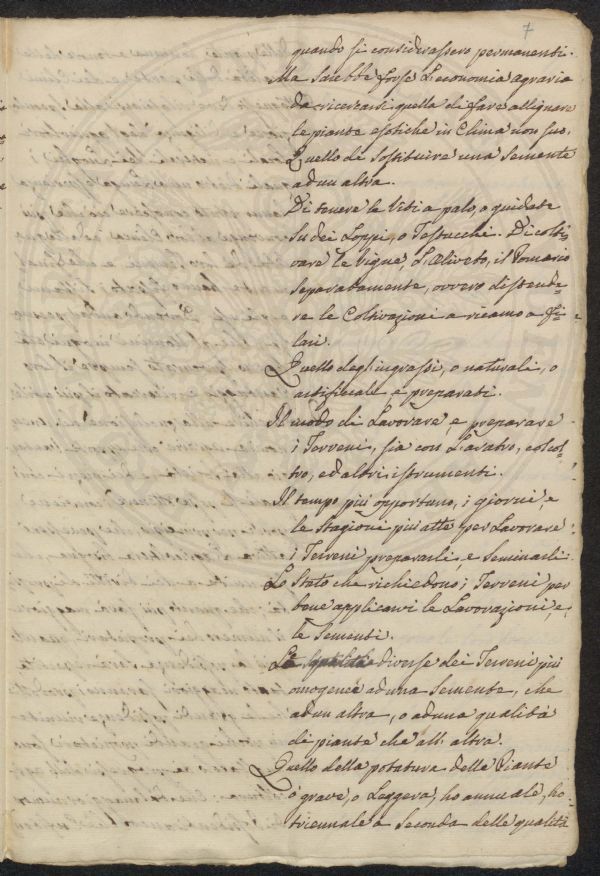 7
quando si considerassero permanenti.
Ma sarebbe forse L'economia agraria
da ricercarsi quella di fare allignare
le piante esotiche in Clima non suo,
Quello di sostituire una Semente
ad un altra.
Di tenere le Viti a palo, o guidate
su dei Loppi, o Testucchi. Di colti,
vare le vigne, L'Oliveto, il Pomario
separatamente, ovvero distende
re le Coltivazioni a ricamo a Fi=
lari.
Quello degl'ingrassi, o naturali, o
artificiali e preparati.
Il modo di Lavorare e preparare
i Terreni, sia con L'aratro, col col=
tro, ed altri istrumenti.
Il tempo più opportuno, i giorni, e
le Stagioni più atte per Lavorare
i Terreni prepararli, e Seminarli.
Lo Stato che richiedono i Terreni per
bene applicarvi le Lavorazioni, e
le Sementi.
Le diverse dei Terreni più
omogenee ad una Semente, che
ad un altra, o ad una qualità
di piante che all' altra.
Quello della potatura delle Piante
o grave, o Leggera, ho annuale, ho
triennale a Seconda delle qualità